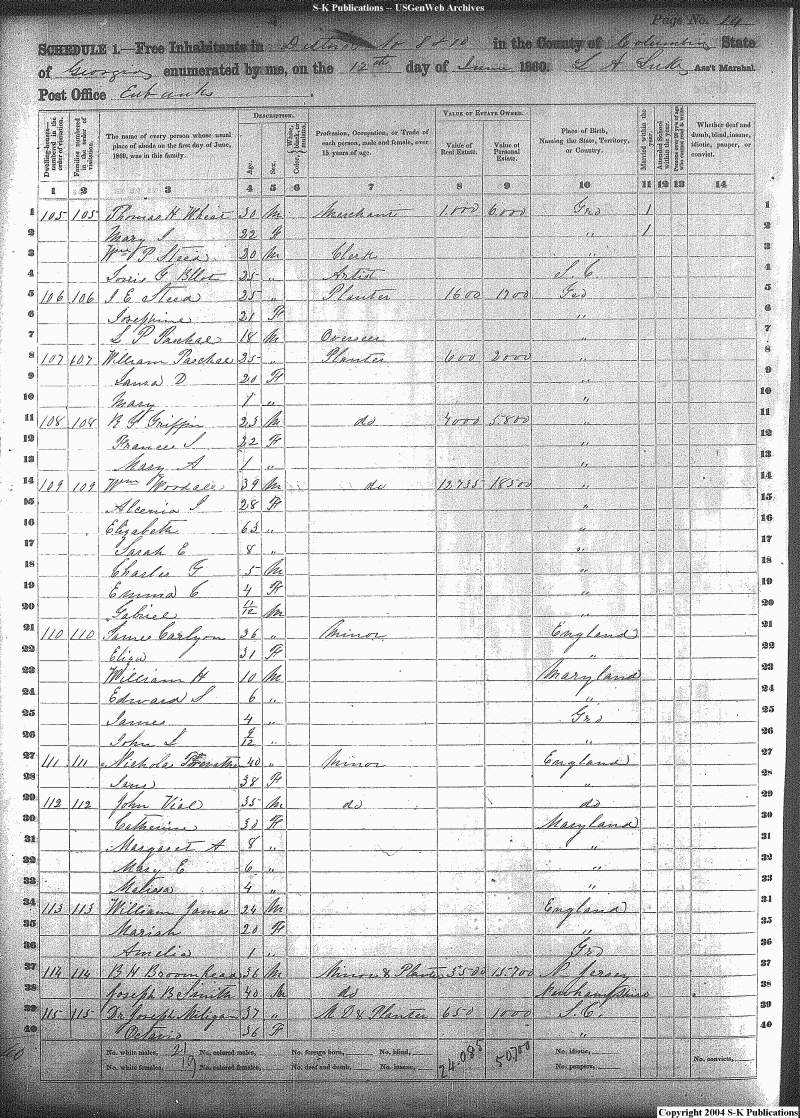 S-K Publications -- USGenWeb Archives
Page No. 14
SCHEDULE 1.—Free Inhabitants in Districts No 8 & 10 in the County of Columbia State
of Georgia enumerated by me, on the 12th day of June 1860. Ass't Marshal.
Post Office Eubanks
DESCRIPTION. VALUE OF ESTATE OWNED.
Dwelling-houses—numbered in the order of visitation. Families numbered in the order of visitation. The name of every person whose usual place of abode on the first day of June, 1860, was in this family. Age. Sex. Color, White, black, or mulatto. Profession, Occupation, or Trade of each person, male and female, over 15 years of age. Value of Real Estate. Value of Personal Estate. Place of Birth, Naming the State, Territory, or Country. Married within the year. Attended School within the year. Persons over 20 years of age who cannot read & write. Whether deaf and dumb, blind, insane, idiotic, pauper, or convict.
1 2 3 4 5 6 7 8 9 10 11 12 13 14
1 105 105 Thomas H Wheat 30 M Merchant 1.000 6.000 Geo 1 1
2 Mary S 22 F " 1 2
3 Wm P Steed 20 M Clerk " 3
4 Louis G Ellot 25 " Artist S. C 4
5 106 106 J E Steed 25 " Planter 1600 1700 Geo 5
6 Josephine 21 F " 6
7 L P Paschal 18 M Overseer " 7
8 107 607 William Paschal 25 " Planter 600 2000 " 8
9 Laura D 20 F " 9
10 Mary 1 " " 10
11 108 108 R F Griffin 23 M do 4000 5.800 " 11
12 Frances S 22 F " 12
13 Mary A 1 " " 13
14 109 109 Wm Woodall 39 M do 12735 18500 " 14
15 Alcenia S 28 F " 15
16 Elizabeth 63 " " 16
17 Sarah E 8 " " 17
18 Charles G 5 M " 18
19 Emma C 4 F " 19
20 Gabriel 11/12 M " 20
21 110 110 James Carlyon 36 " Minor England 21
22 Eliza 31 F " 22
23 William H 10 M Maryland 23
24 Edward S 6 " " 24
25 James 4 " Geo 25
26 John S 9/12 " " 26
27 111 111 Nicholas 40 " Minor England 27
28 Jane 38 F " 28
29 112 112 John Vial 35 M do do 29
30 Catherine 30 F Maryland 30
31 Margaret A 8 " " 31
32 Mary E 6 " " 32
33 Melissa 4 " " 33
34 113 113 William James 24 M England 34
35 Mariah 20 F " 35
36 Amelia 1 " Geo 36
37 114 114 B H Broomhead 36 M Minor & Planter 3500 15.700 N. Jersey 37
38 Joseph B Smith 40 M do Newhampshire 38
39 115 115 Dr Joseph Miligan 37 " M. D & Planter 650 1000 S. C. 39
40 Octavia 36 F " 40
No. white males, 21 No. colored males, No. foreign born, No. blind, 24.085 50700 No. idiotic,
No. white females, 19 No. colored females, No. deaf and dumb, No. insane, No. paupers, No. convicts,
Copyright 2004 S-K Publications